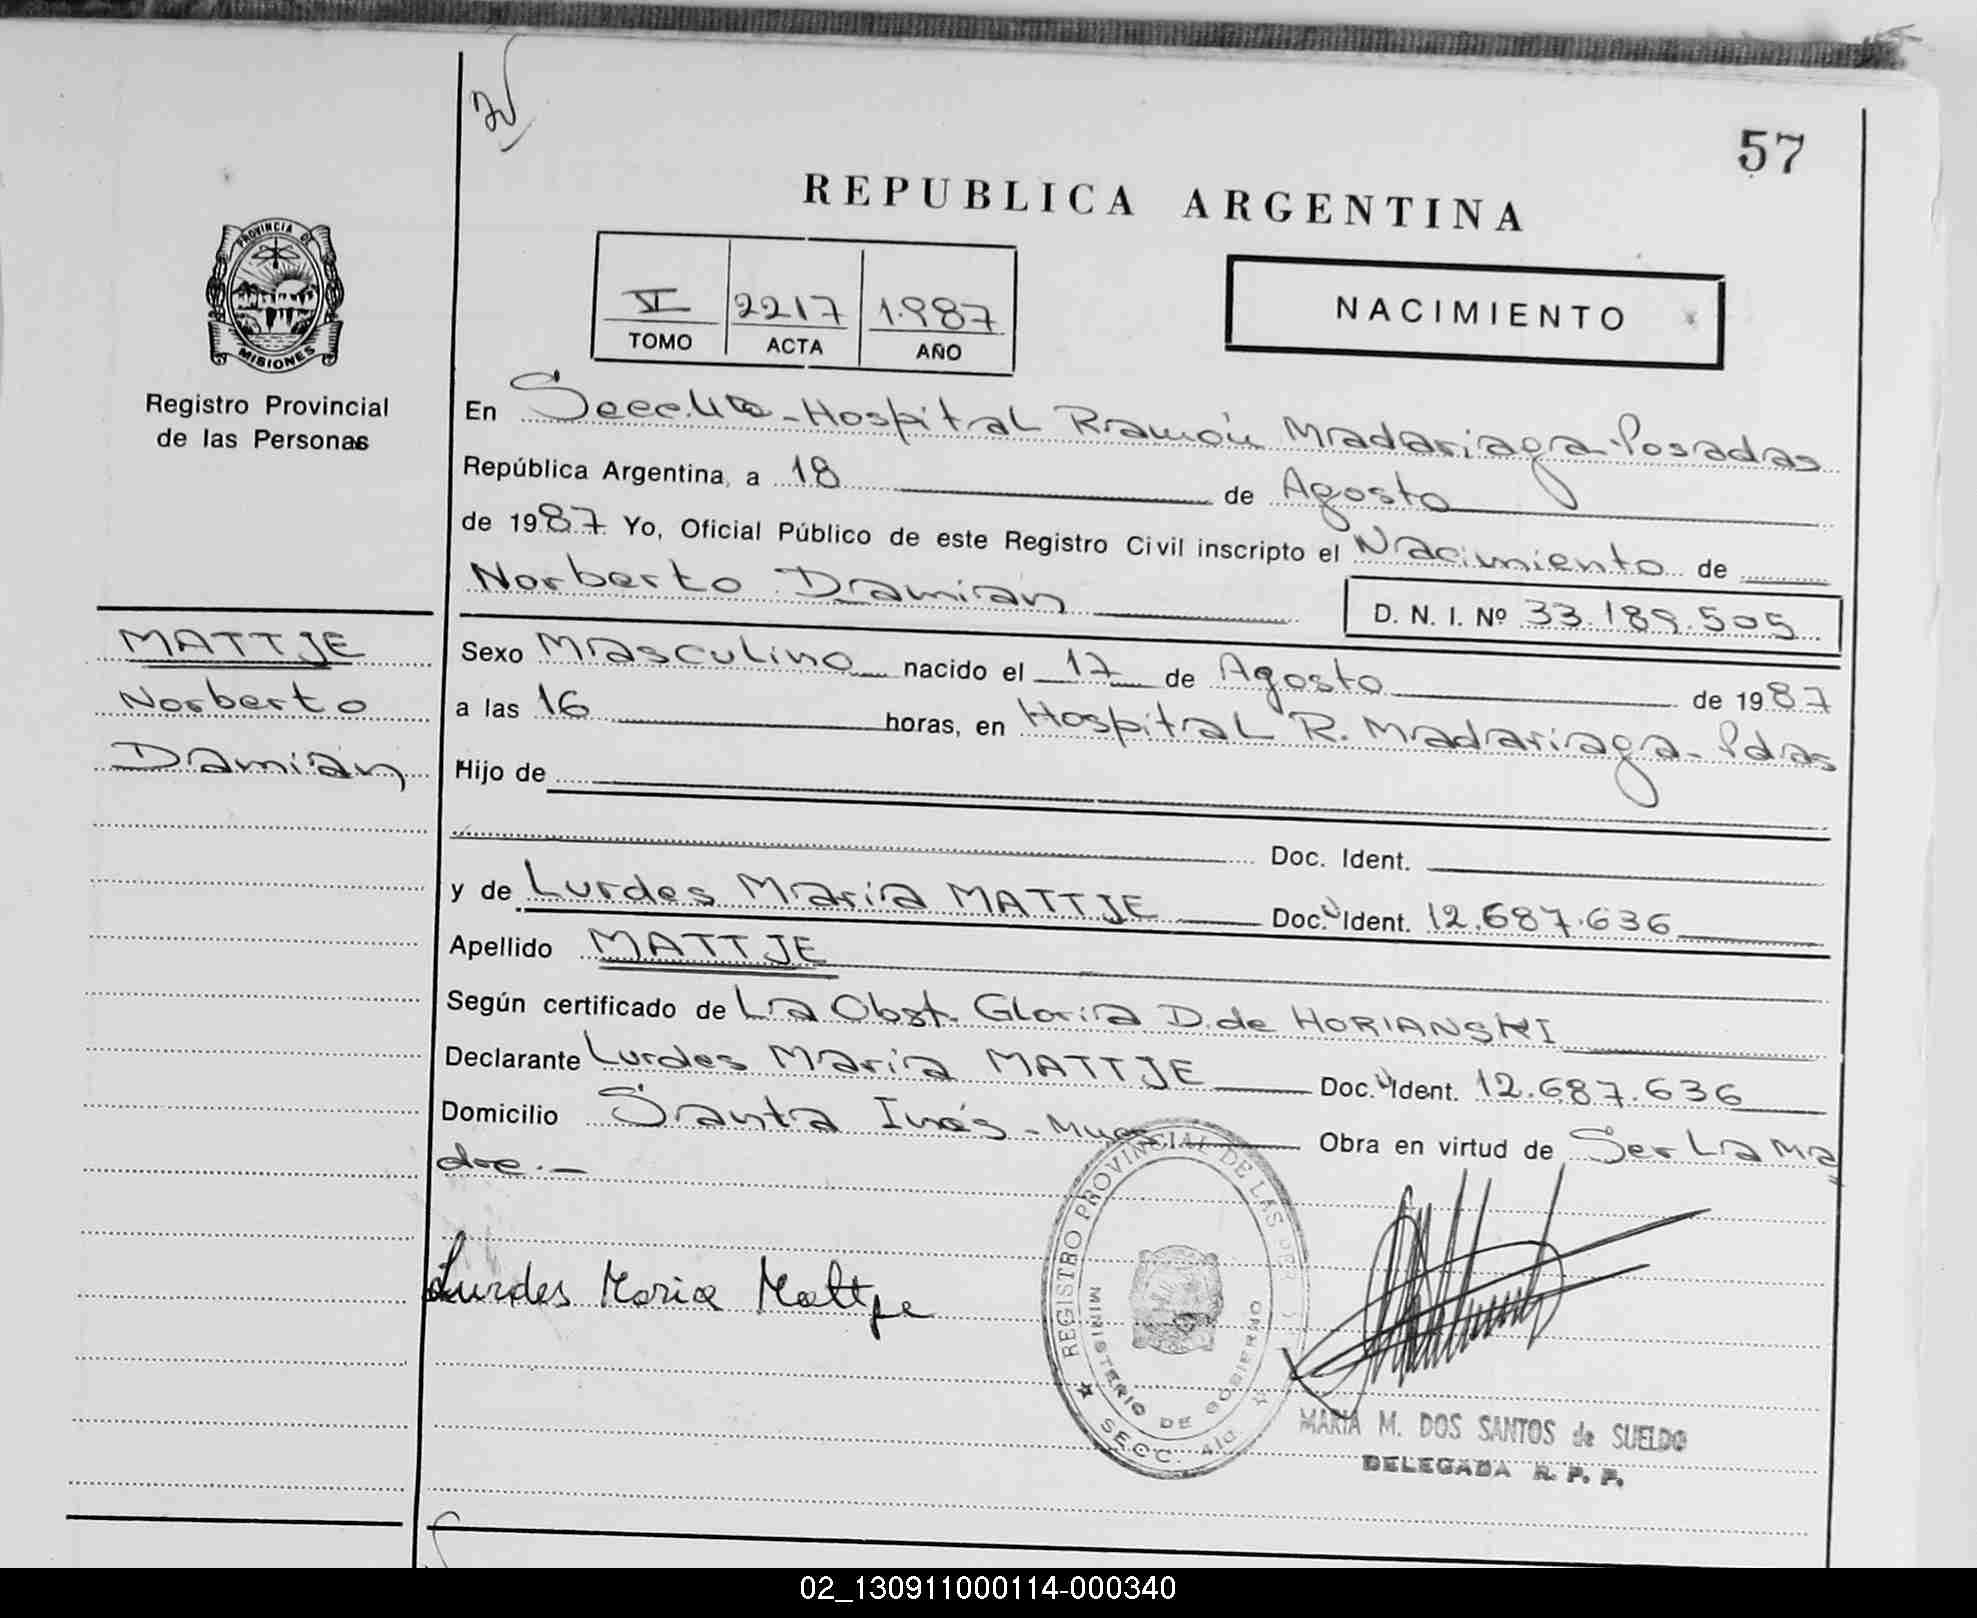 57
REPUBLICA ARGENTINA
PROVINCIA DE
MISIONES
Registro Provincial
de las Personas
VI 2217 1.987
TOMO ACTA AÑO
NACIMIENTO
En Secc.4ta-Hospital Ramón Madariaga-Posadas
República Argentina, a 18 de Agosto
de 1987 Yo, Oficial Público de este Registro Civil inscripto el Nacimiento de
Norberto Damián D. N. I. Nº 33.189.505
MATTJE
Norberto
Damián
Sexo Masculino nacido el 17 de Agosto de 1987
a las 16 horas, en Hospital R. Madariaga-Pdas
Hijo de
Doc. Ident.
y de Lurdes María MATTJE Doc. Ident. 12.687.636
Apellido MATTJE
Según certificado de La Obst. Gloria D. de HORIANSKI
Declarante Lurdes María MATTJE Doc. Ident. 12.687.636
Domicilio Santa Inés- Obra en virtud de Ser La Ma
dre.-
Lurdes Maria Mattje
REGISTRO PROVINCIAL DE LAS PER
MINISTERIO DE GOBIERNO
SECC. 4ta
MARIA M. DOS SANTOS de SUELDO
DELEGADA R. P. P.
02_130911000114-000340